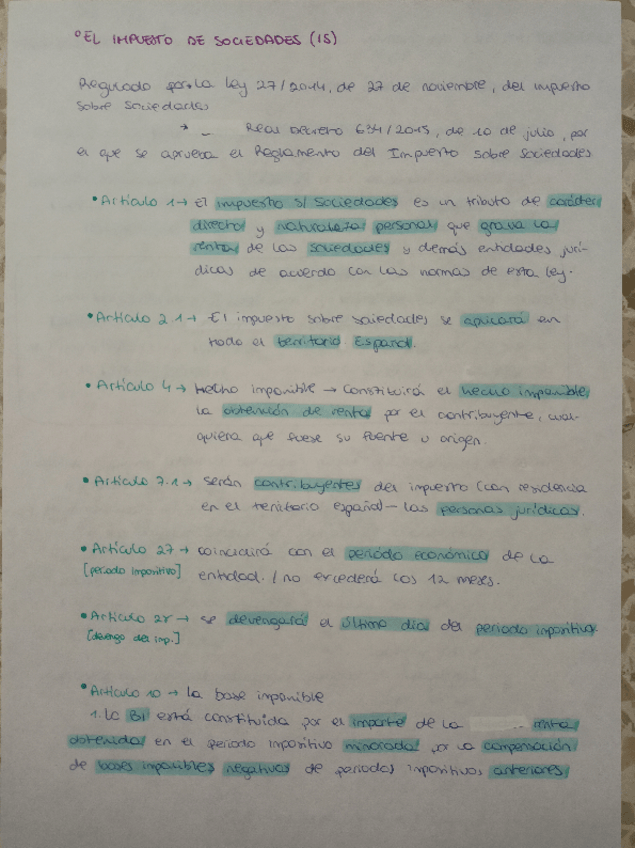 ° EL IMPUESTO DE SOCIEDADES (IS)
Regulado por la Ley 27/2014, de 27 de noviembre, del impuesto
sobre sociedades
Real Decreto 634/2015, de 10 de julio, por
el que se aprueba el Reglamento del Impuesto sobre Sociedades
• Artículo 1 → El impuesto s/ Sociedades es un tributo de carácter
directo y naturaleza personal que grava la
renta de las sociedades y demás entidades jurí-
dicas de acuerdo con las normas de esta ley.
• Artículo 2.1 → El impuesto sobre sociedades se aplicará en
todo el territorio Español.
• Artículo 4 → Hecho Imponible → Constituirá el hecho imponible,
la obtención de renta por el contribuyente, cual-
quiera que fuese su fuente u origen.
• Artículo 7.1 → Serán contribuyentes del impuesto (con residencia
en el territorio español - las personas jurídicas.
• Artículo 27 → coincidirá con el periódo económico de la
[período impositivo] entidad. / no excederá los 12 meses.
• Artículo 28 → se devengará el último día del período impositivo.
[devengo del imp.]
• Artículo 10 → la base imponible
1. La BI está constituida por el importe de la renta
obtenida en el período impositivo minorada por la compensación
de bases imponibles negativas de períodos impositivos anteriores